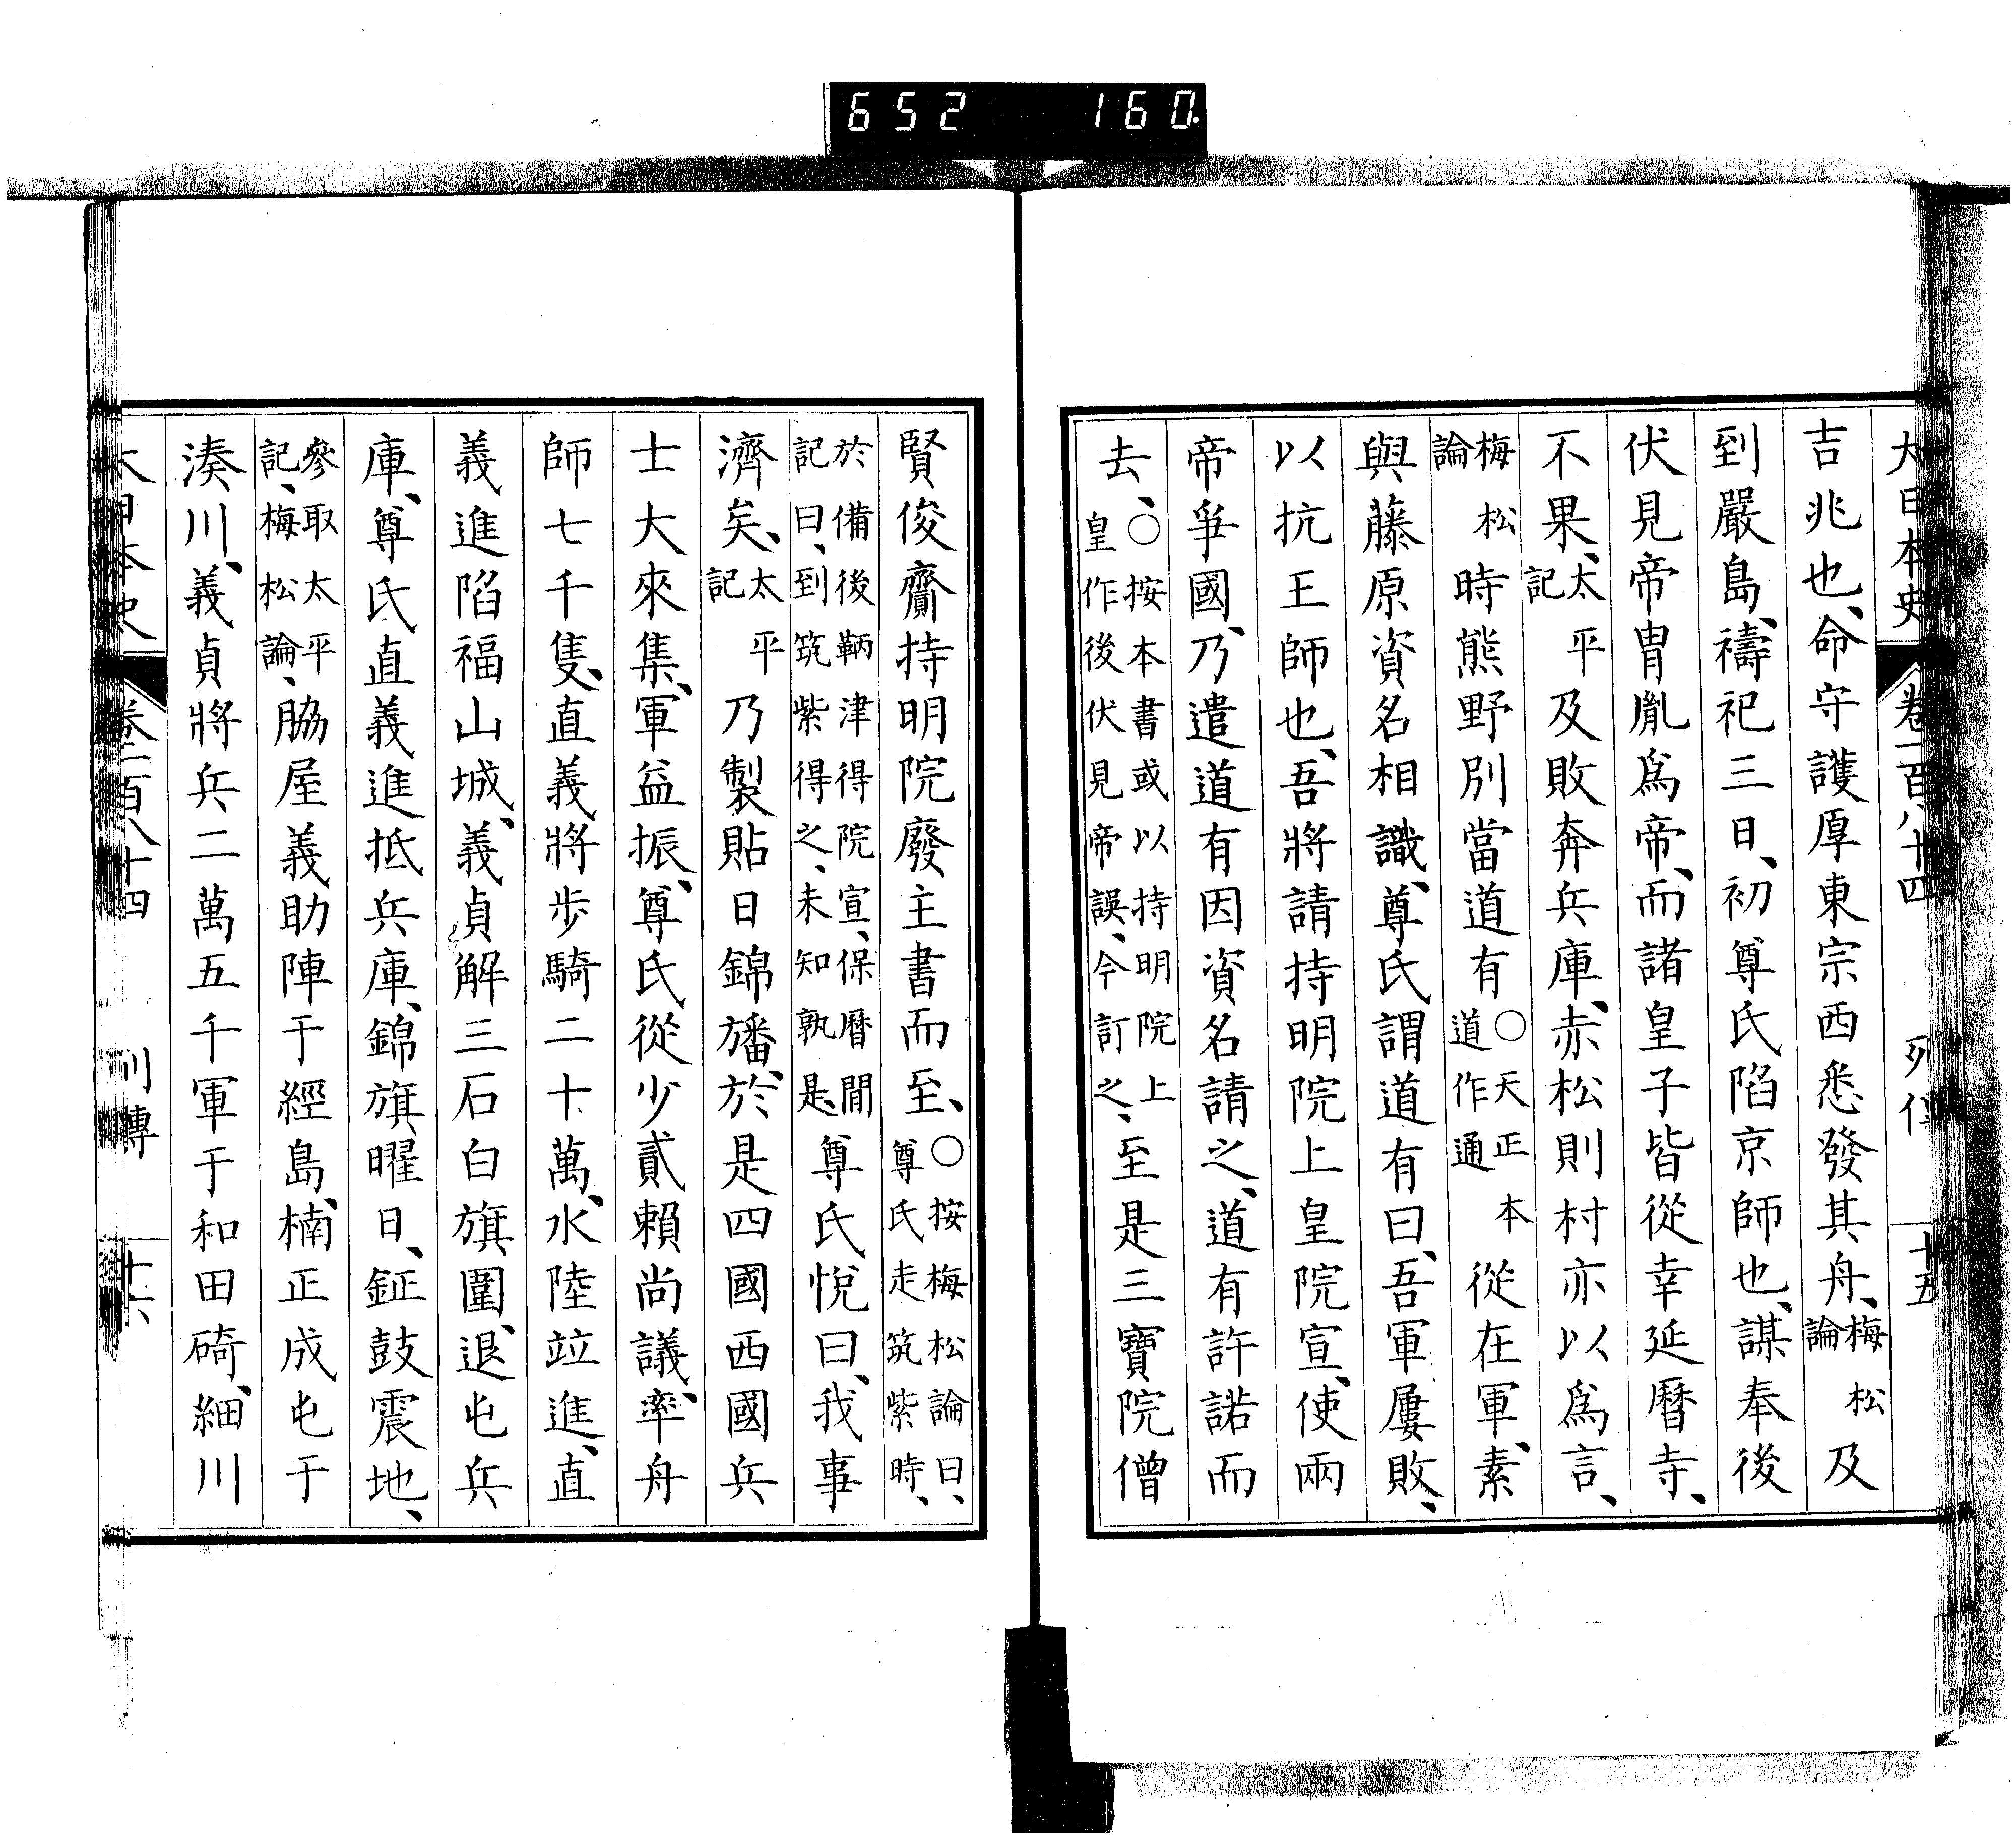 652 160.
大日本史 卷一百八十四 列傳 十五
吉兆也、命守護厚東宗西悉發其舟、梅松論及
到嚴島、禱祀三日、初尊氏陷京師也、謀奉後
伏見帝冑胤爲帝、而諸皇子皆從幸延曆寺、
不果、太平記及敗奔兵庫、赤松則村亦以爲言、
梅松論時熊野別當道有〇天正本道作通從在軍、素
與藤原資名相識、尊氏謂道有曰、吾軍屢敗、
以抗王師也、吾將請持明院上皇院宣、使兩
帝爭國、乃遣道有因資名請之、道有許諾而
去、〇按本書或以持明院上皇作後伏見帝誤、今訂之、至是三寶院僧
賢俊齎持明院廢主書而至、〇按梅松論曰、尊氏走筑紫時、
於備後鞆津得院宣、保曆間記曰、到筑紫得之、未知孰是、尊氏悅曰、我事
濟矣、太平記乃製貼日錦旛、於是四國西國兵
士大來集、軍益振、尊氏從少貳賴尚議、率舟
師七千隻、直義將步騎二十萬、水陸竝進、直
義進陷福山城、義貞解三石白旗圍、退屯兵
庫、尊氏直義進抵兵庫、錦旗曜日、鉦鼓震地、
參取太平記、梅松論、脇屋義助陣于經島、楠正成屯于
湊川、義貞將兵二萬五千軍于和田碕、細川
大日本史 卷一百八十四 列傳 十六